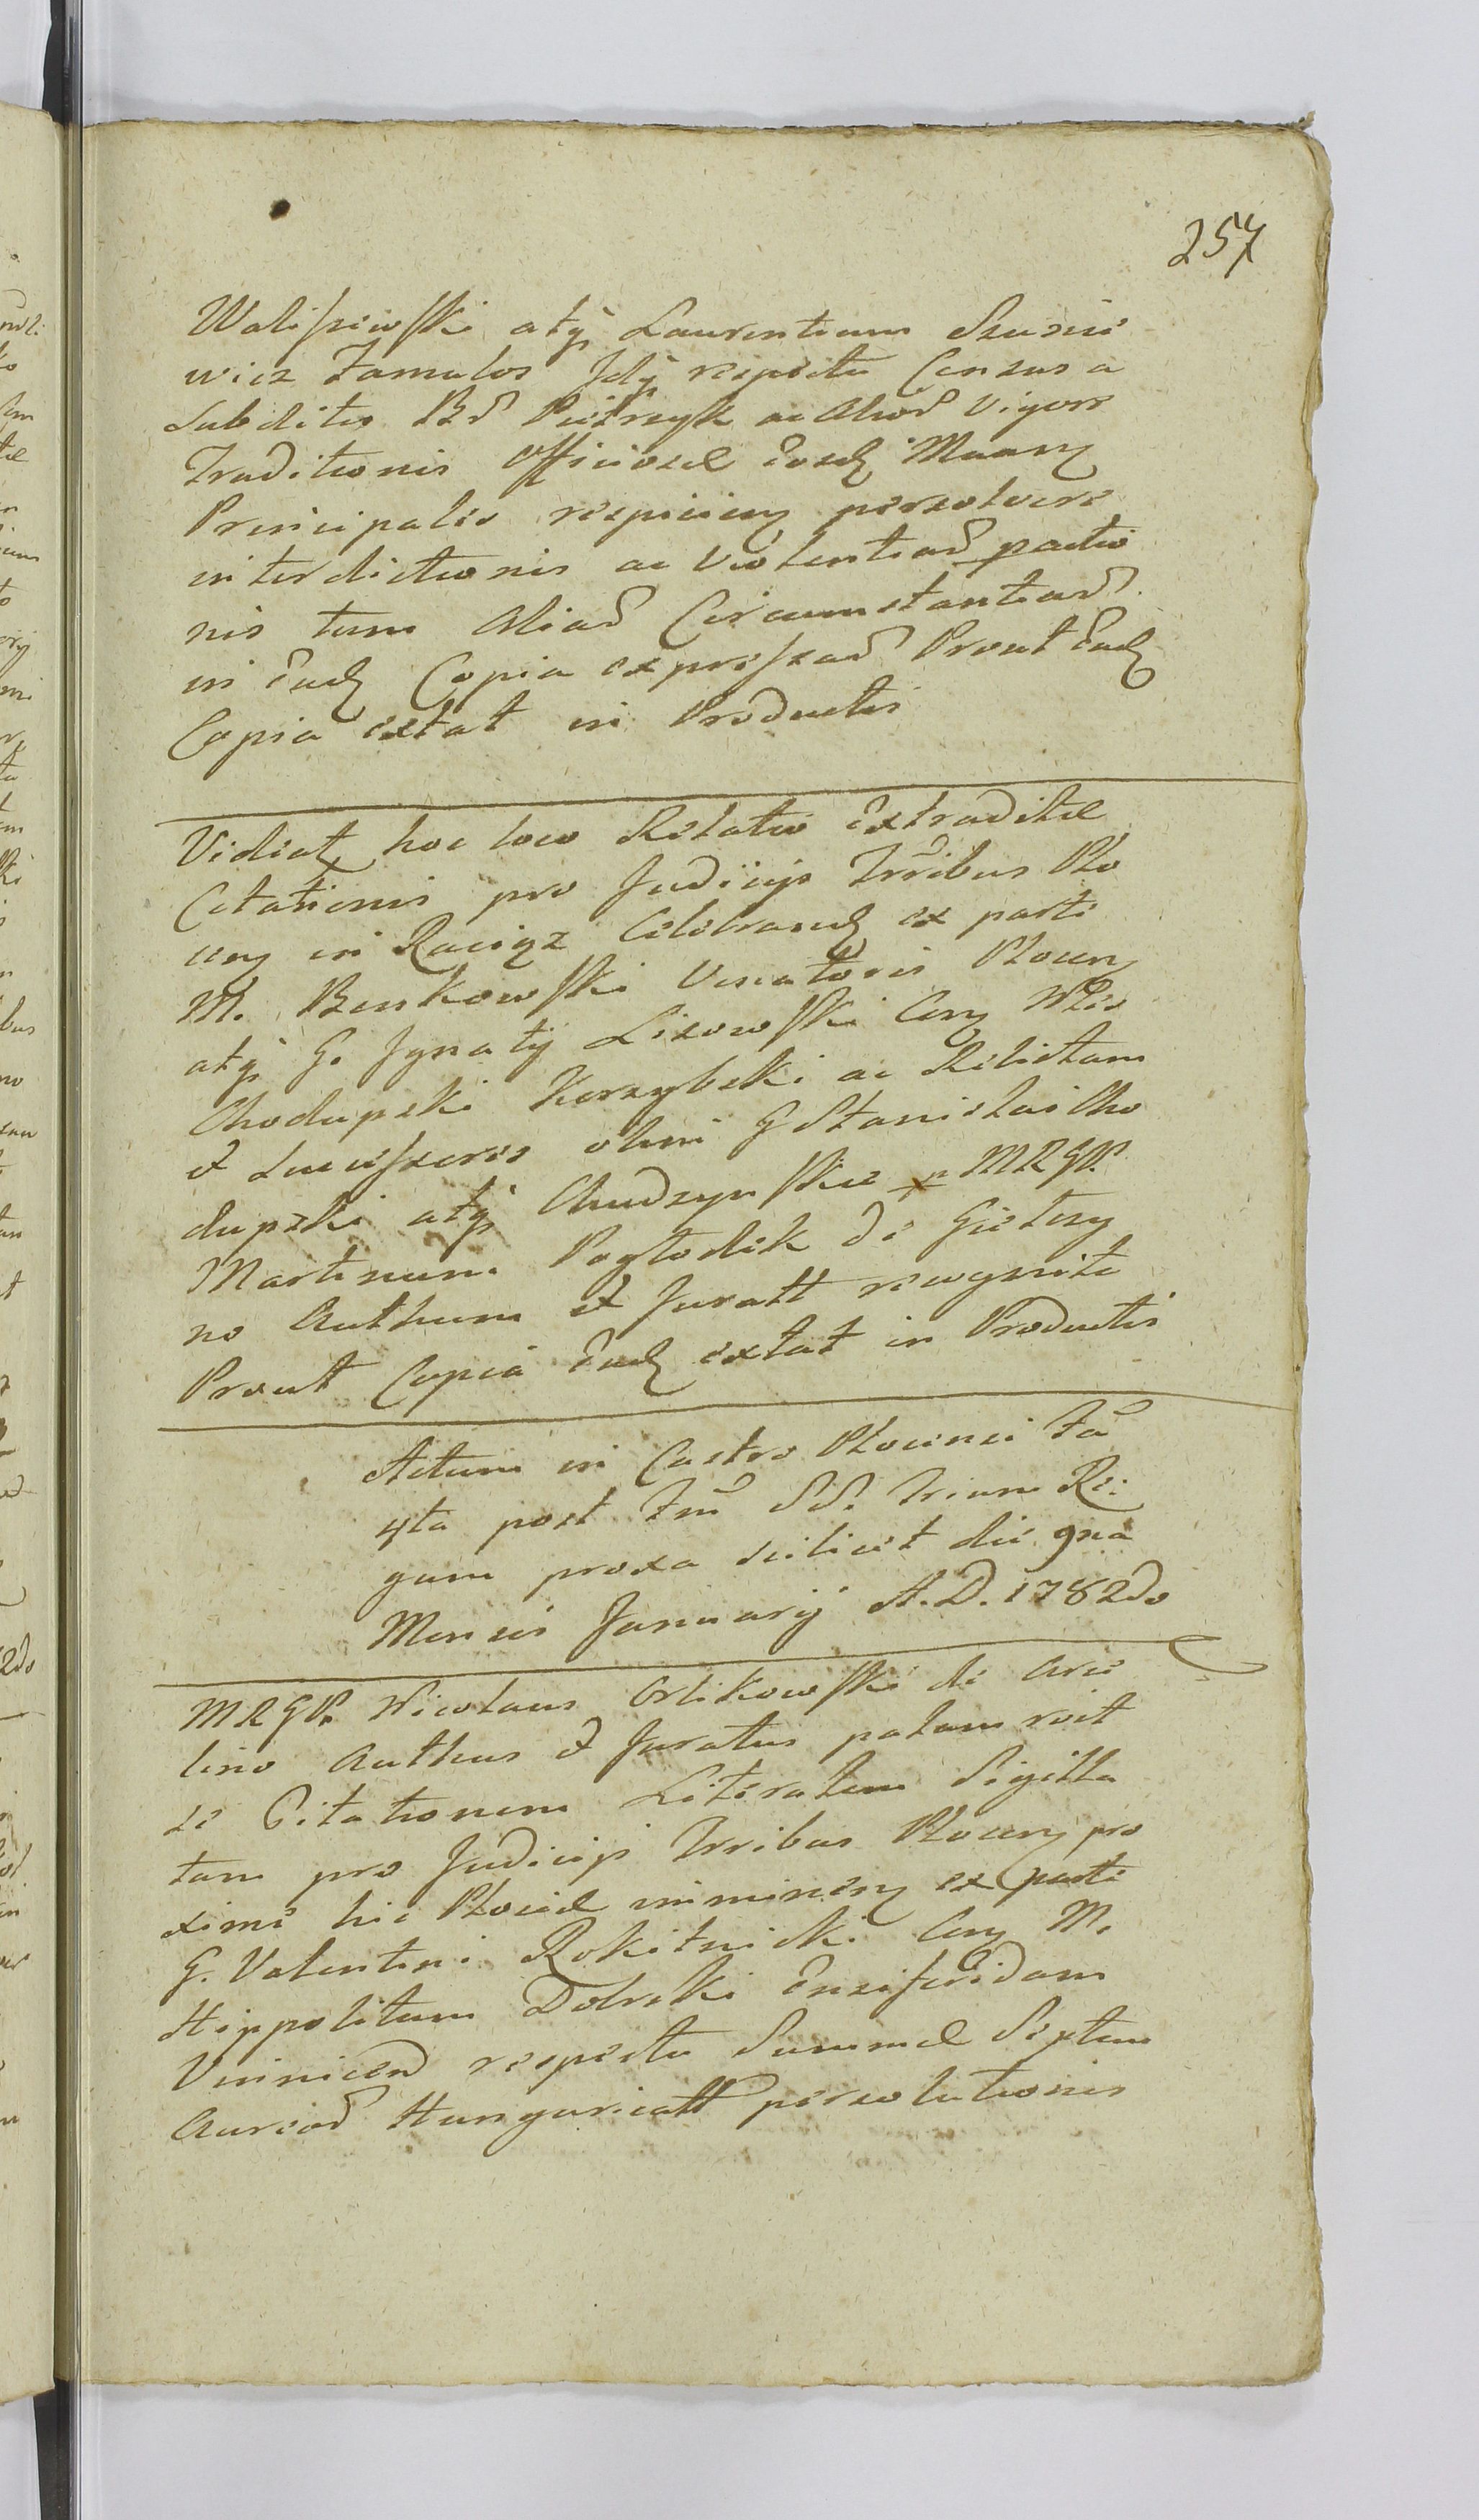 257
Waliszewski atq Laurentium Szunie
wicz Famulos Idq respectu Census a
Subditis Pietrzyk ac Aliod Vigore
Traditionis Officiosae Eosd
Principales respicien persolvere
interdictionis ac Violentiad patio
nis tum Aliad Circumstantiad
in Ead Copia expressad Prout Ead
Copia extat in Productis
Videat hoc loco Relatio Extraditae
Citationis pro Judicijs Trribus Plo
cen in Raciąz Celebrand ex parte
M. Benkowski Venatoris Plocen
atq G. Ignatij Lisowski Con
Chodupski Korzybski ac Relictam
et Successores olim G Stanislai Cho
dupski atq Chudzynskie p MRGP.
Martinum Pogłodek de Gietrzy
no Authum et Juratt recognitae
Prout Copia Ead extat in Productis
Actum in Castro Plocensi Fa
4ta post Fm SS. Trium Re:
gum proxa scilicet die 9na
Mensis Januarij A.D. 1782do
MRGP. Nicolaus Orlikowski de Orli
lino Authus et Juratus palam rcit
se Citationem Literatem Sigilla
tam pro Judicijs Trribus Plocen pro
xime hic Plociae imminen ex parte
G. Valentini Rokitnicki Con M.
Hippolitum Dobrski Ensiferidam
Vinnicen respectu Summae Septem
Aureod Hungaricatt persolutionis